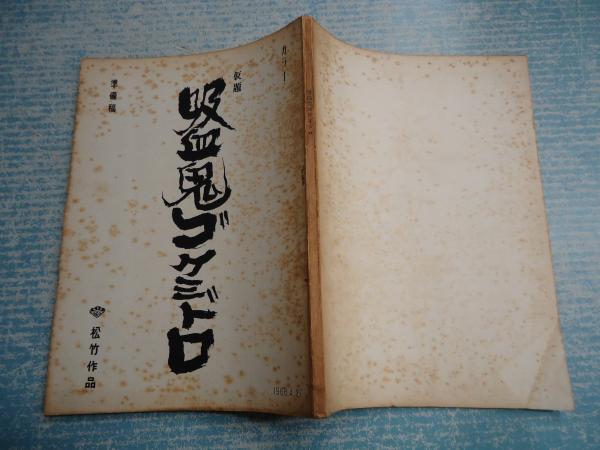 カラー
仮題
吸血鬼ゴケミドロ
準備稿
松竹作品